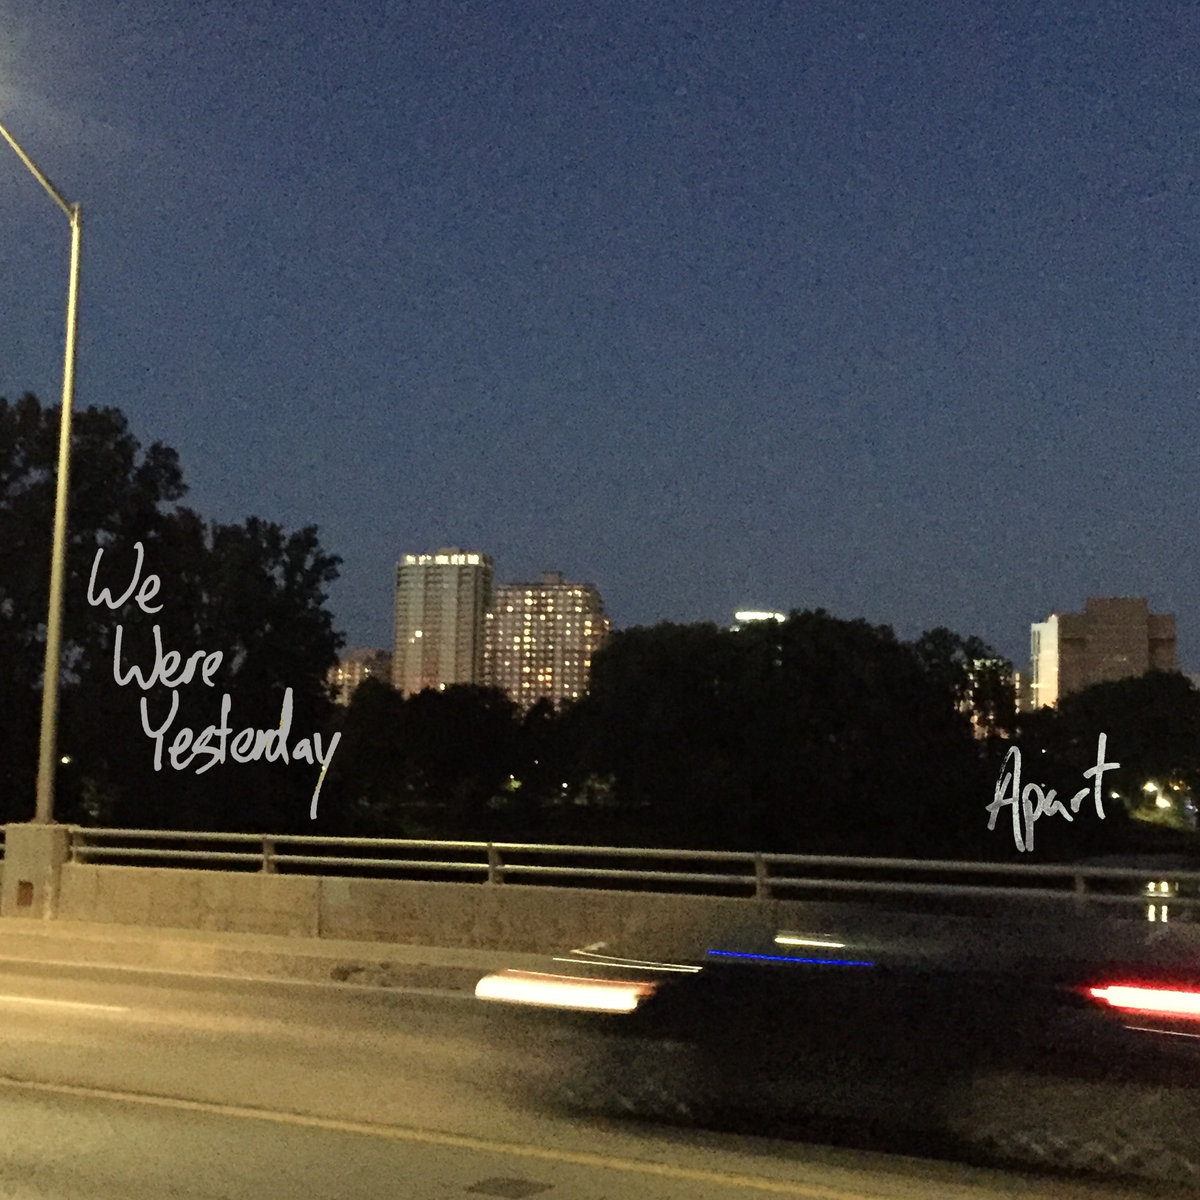 We
Were
Yesterday
Apart